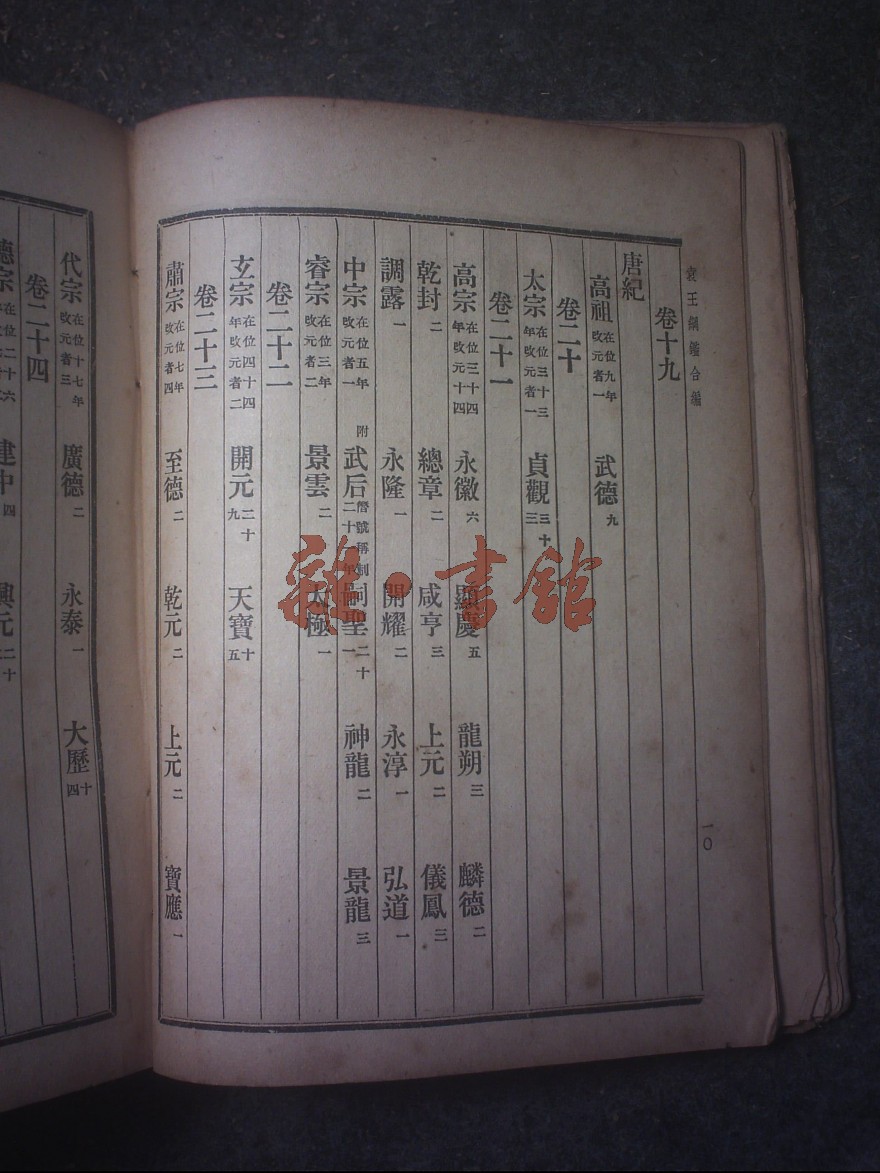 袁王綱鑑合編
卷十九
唐紀
高祖 在位九年改元者一 武德 九
卷二十
太宗 在位三十三年改元者一 貞觀 三十三
卷二十一
高宗 在位三十四年改元十四 永徽 六 顯慶 五 龍朔 三 麟德 二
乾封 二 總章 二 咸亨 三 上元 二 儀鳳 三
調露 一 永隆 一 開耀 二 永淳 一 弘道 一
中宗 在位五年改元者一 附武后 僭號稱制二十一年 嗣聖 二十一 神龍 二 景龍 三
睿宗 在位三年改元者二 景雲 二 太極 一
卷二十二
玄宗 在位四十四年改元者二 開元 二十九 天寶 十五
卷二十三
肅宗 在位七年改元者四 至德 二 乾元 二 上元 二 寶應 一
一〇
代宗 在位十七年改元者三 廣德 二 永泰 一 大歷 十四
卷二十四
德宗 在位二十六 建中 四 興元 二十
雜·書館